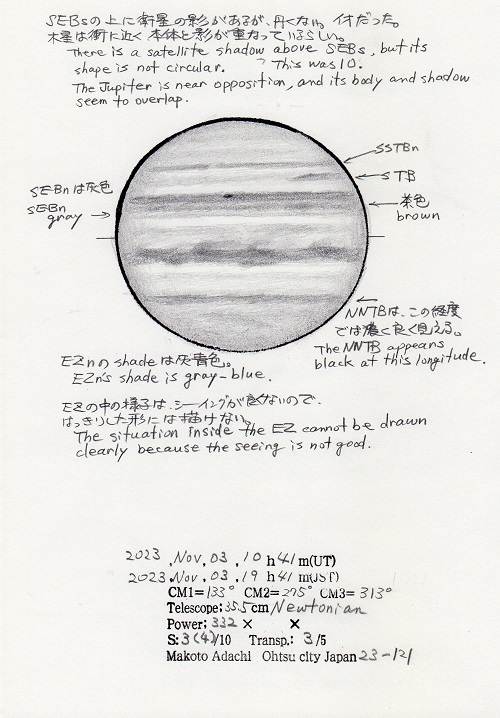 SEBsの上に衛星の影があるが、丸くない。イオだった。
木星は衝に近く本体と影が重なっているらしい。
There is a satellite shadow above SEBs, but its
shape is not circular. This was IO.
The Jupiter is near opposition, and its body and shadow
seem to overlap.
SSTBn
STB
SEBnは灰色
SEBn
gray
茶色
brown
NNTBは、この経度
では濃く良く見える。
The NNTB appears
black at this longitude.
EZnのshadeは灰青色。
EZn's shade is gray-blue.
EZの中の様子は、シーイングが良くないので、
はっきりした形には描けない。
The situation inside the EZ cannot be drawn
clearly because the seeing is not good.
2023 ,Nov, 03 , 10 h 41 m(UT)
2023 ,Nov, 03 , 19 h 41 m(JST)
CM1= 133° CM2= 275° CM3= 313°
Telescope; 35.5 cm Newtonian
Power; 332 × ×
S: 3(4)/10 Transp.: 3 /5
Makoto Adachi Ohtsu city Japan 23-121